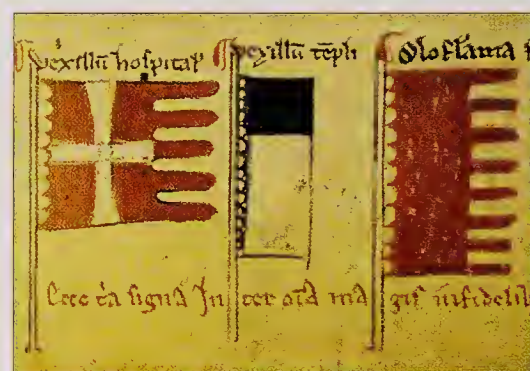 vexillū hospital'
vexillū tēpli
Olofla̅ma
Ecce t'a signa Inter ōīa magis infidelib